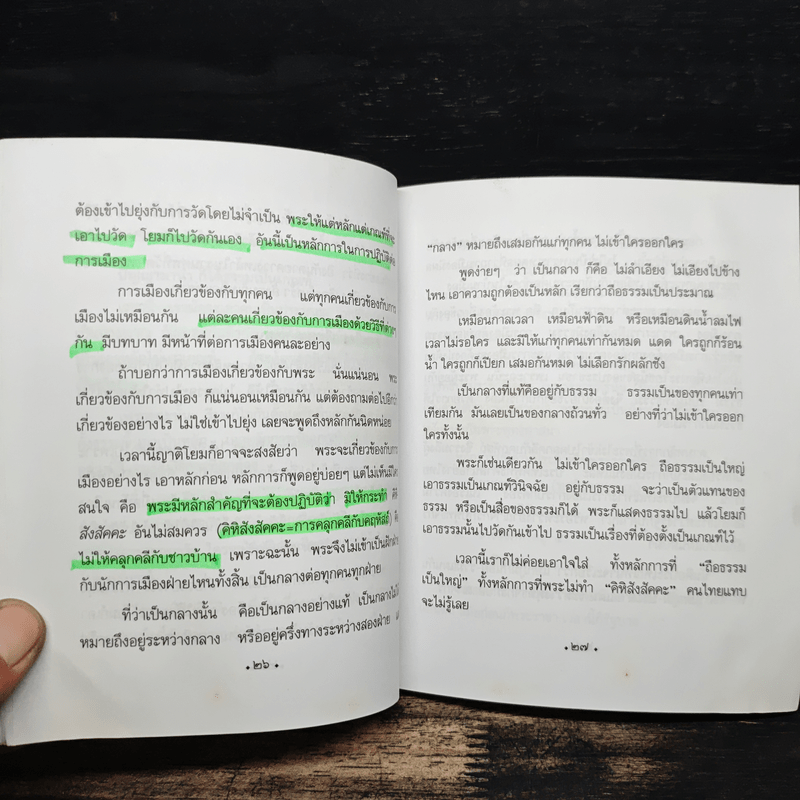 ต้องเข้าไปยุ่งกับการวัดโดยไม่จำเป็น พระให้แต่หลักแต่เกณฑ์ที่จะ
เอาไปวัด โยมก็ไปวัดกันเอง อันนี้เป็นหลักการในการปฏิบัติต่อ
การเมือง
การเมืองเกี่ยวข้องกับทุกคน แต่ทุกคนเกี่ยวข้องกับการ
เมืองไม่เหมือนกัน แต่ละคนเกี่ยวข้องกับการเมืองด้วยวิธีที่ต่างๆ
กัน มีบทบาท มีหน้าที่ต่อการเมืองคนละอย่าง
ถ้าบอกว่าการเมืองเกี่ยวข้องกับพระ นั่นแน่นอน พระ
เกี่ยวข้องกับการเมือง ก็แน่นอนเหมือนกัน แต่ต้องถามต่อไปอีกว่า
เกี่ยวข้องอย่างไร ไม่ใช่เข้าไปยุ่ง เลยจะพูดถึงหลักกันนิดหน่อย
เวลานี้ญาติโยมก็อาจจะสงสัยว่า พระจะเกี่ยวข้องกับการ
เมืองอย่างไร เอาหลักก่อน หลักการก็พูดอยู่บ่อยๆ แต่ไม่เห็นมีใคร
สนใจ คือ พระมีหลักสำคัญที่จะต้องปฏิบัติว่า มิให้กระทำ คิหิ
สังสัคคะ อันไม่สมควร (คิหิสังสัคคะ=การคลุกคลีกับคฤหัสถ์) คือ
ไม่ให้คลุกคลีกับชาวบ้าน เพราะฉะนั้น พระจึงไม่เข้าเป็นฝักฝ่าย
กับนักการเมืองฝ่ายไหนทั้งสิ้น เป็นกลางต่อทุกคนทุกฝ่าย
ที่ว่าเป็นกลางนั้น คือเป็นกลางอย่างแท้ เป็นกลางไม่ได้
หมายถึงอยู่ระหว่างกลาง หรืออยู่ครึ่งทางระหว่างสองฝ่าย
• ๒๖ •
“กลาง” หมายถึงเสมอกันแก่ทุกคน ไม่เข้าใครออกใคร
พูดง่ายๆ ว่า เป็นกลาง ก็คือ ไม่ลำเอียง ไม่เอียงไปข้าง
ไหน เอาความถูกต้องเป็นหลัก เรียกว่าถือธรรมเป็นประมาณ
เหมือนกาลเวลา เหมือนฟ้าดิน หรือเหมือนดินน้ำลมไฟ
เวลาไม่รอใคร และมีให้แก่ทุกคนเท่ากันหมด แดด ใครถูกก็ร้อน
น้ำ ใครถูกก็เปียก เสมอกันหมด ไม่เลือกรักผลักชัง
เป็นกลางที่แท้คืออยู่กับธรรม ธรรมเป็นของทุกคนเท่า
เทียมกัน มันเลยเป็นของกลางถ้วนทั่ว อย่างที่ว่าไม่เข้าใครออก
ใครทั้งนั้น
พระก็เช่นเดียวกัน ไม่เข้าใครออกใคร ถือธรรมเป็นใหญ่
เอาธรรมเป็นเกณฑ์วินิจฉัย อยู่กับธรรม จะว่าเป็นตัวแทนของ
ธรรม หรือเป็นสื่อของธรรมก็ได้ พระก็แสดงธรรมไป แล้วโยมก็
เอาธรรมนั้นไปวัดกันเข้าไป ธรรมเป็นเรื่องที่ต้องตั้งเป็นเกณฑ์ไว้
เวลานี้เราก็ไม่ค่อยเอาใจใส่ ทั้งหลักการที่ “ถือธรรม
เป็นใหญ่” ทั้งหลักการที่พระไม่ทำ “คิหิสังสัคคะ” คนไทยแทบ
จะไม่รู้เลย
• ๒๗ •